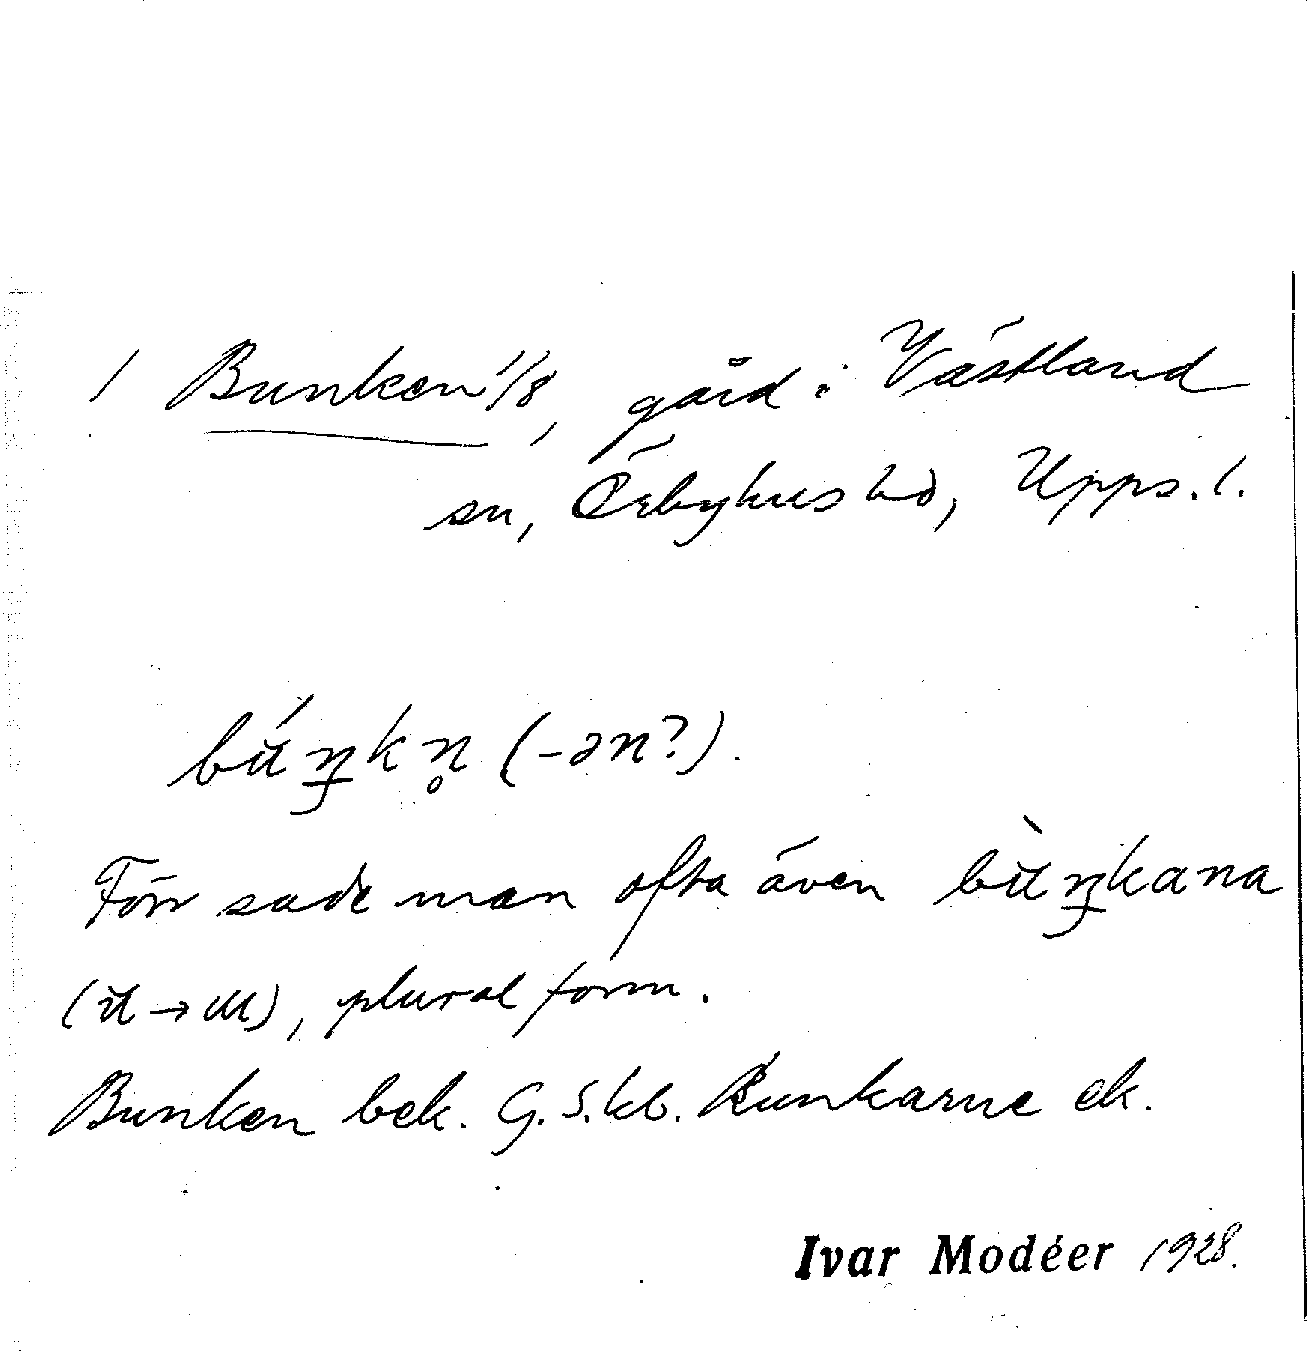 / Bunken 1/8, gård i Västland
sn, Örbyhus hd, Upps. l.
bú̆ŋkn̥ (-ən?).
Förr sade man ofta även bù̆ŋkana
(ŭ → ɯ), plural form.
Bunken bek. G. S. kb. Bunkarne ek.
Ivar Modéer 1928.